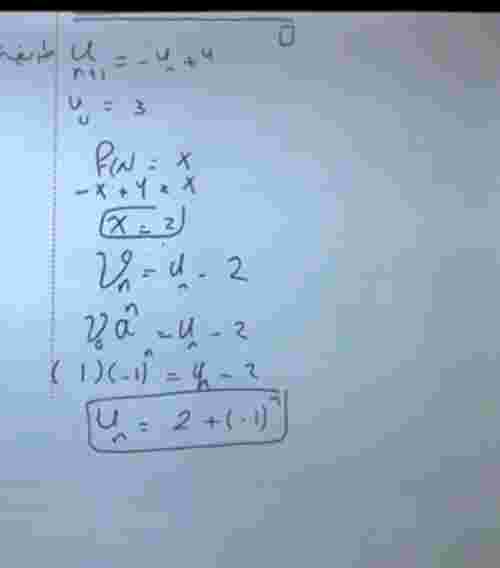 U_{n+1} = -U_n + 4
U_0 = 3
f(x) = x
-x + 4 = x
x = 2
V_n = U_n - 2
V_0 a^n = U_n - 2
(1)(-1)^n = U_n - 2
U_n = 2 + (-1)^n